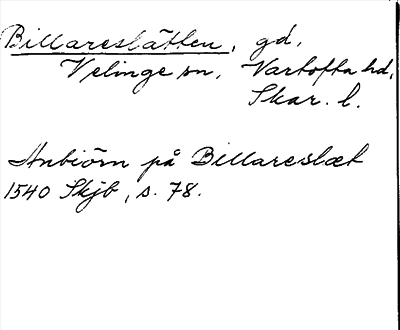 Billareslätten, gd,
Velinge sn, Vartofta hd,
Skar. l.
Anbiörn på Billareslæt
1540 Skjb, s. 78.